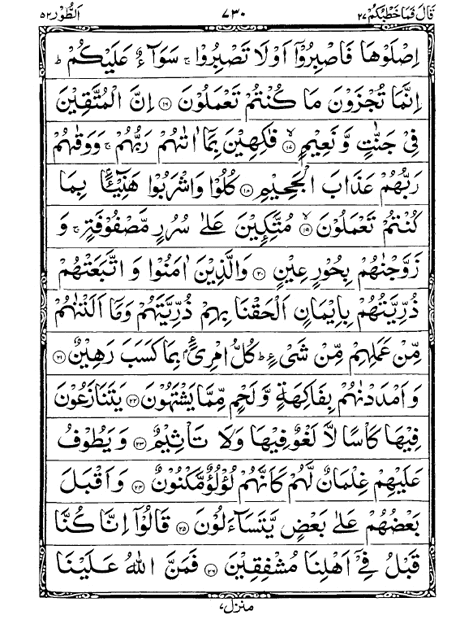 قَالَ فَمَا خَطْبُكُمْ ۲۷ ۷۳۰ اَلطُّوْر ۵۲
اِصْلَوْهَا فَاصْبِرُوْٓا اَوْ لَا تَصْبِرُوْا ۚ سَوَآءٌ عَلَيْكُمْ ؕ
اِنَّمَا تُجْزَوْنَ مَا كُنْتُمْ تَعْمَلُوْنَ ﴿۱۶﴾ اِنَّ الْمُتَّقِيْنَ
فِيْ جَنّٰتٍ وَّ نَعِيْمٍ ﴿۱۷﴾ فٰكِهِيْنَ بِمَآ اٰتٰىهُمْ رَبُّهُمْ ۚ وَوَقٰىهُمْ
رَبُّهُمْ عَذَابَ الْجَحِيْمِ ﴿۱۸﴾ كُلُوْا وَاشْرَبُوْا هَنِيْٓـًٔۢا بِمَا
كُنْتُمْ تَعْمَلُوْنَ ﴿۱۹﴾ مُتَّكِـِٕيْنَ عَلٰى سُرُرٍ مَّصْفُوْفَةٍ ۚ وَ
زَوَّجْنٰهُمْ بِحُوْرٍ عِيْنٍ ﴿۲۰﴾ وَالَّذِيْنَ اٰمَنُوْا وَ اتَّبَعَتْهُمْ
ذُرِّيَّتُهُمْ بِاِيْمَانٍ اَلْحَقْنَا بِهِمْ ذُرِّيَّتَهُمْ وَمَآ اَلَتْنٰهُمْ
مِّنْ عَمَلِهِمْ مِّنْ شَيْءٍ ؕ كُلُّ امْرِئٍۢ بِمَا كَسَبَ رَهِيْنٌ ﴿۲۱﴾
وَ اَمْدَدْنٰهُمْ بِفَاكِهَةٍ وَّ لَحْمٍ مِّمَّا يَشْتَهُوْنَ ﴿۲۲﴾ يَتَنَازَعُوْنَ
فِيْهَا كَاْسًا لَّا لَغْوٌ فِيْهَا وَلَا تَاْثِيْمٌ ﴿۲۳﴾ وَ يَطُوْفُ
عَلَيْهِمْ غِلْمَانٌ لَّهُمْ كَاَنَّهُمْ لُؤْلُؤٌ مَّكْنُوْنٌ ﴿۲۴﴾ وَ اَقْبَلَ
بَعْضُهُمْ عَلٰى بَعْضٍ يَّتَسَآءَلُوْنَ ﴿۲۵﴾ قَالُوْٓا اِنَّا كُنَّا
قَبْلُ فِيْٓ اَهْلِنَا مُشْفِقِيْنَ ﴿۲۶﴾ فَمَنَّ اللّٰهُ عَلَيْنَا
منزل ۷